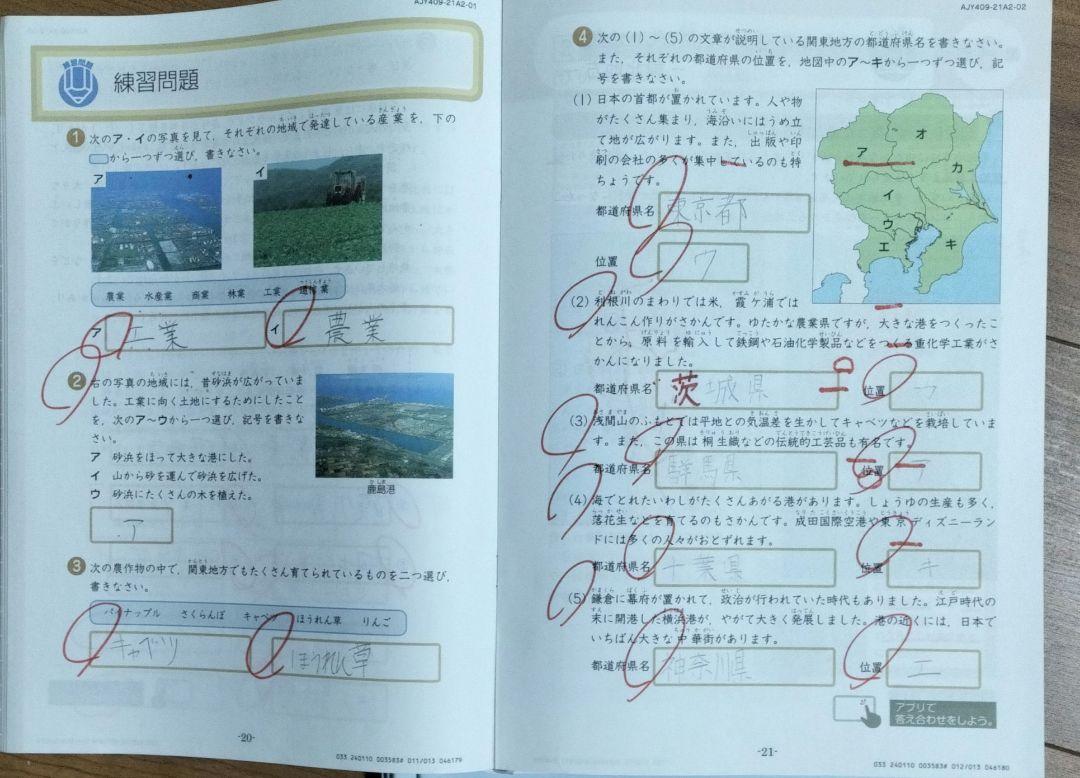 AJY409-21A2-01
練習問題
練習問題
1 次のア・イの写真を見て,それぞれの地域で発達している産業を,下の
から一つずつ選び,書きなさい。
ア
イ
農業 水産業 商業 林業 工業 造船業
ア 工業 イ 農業
2 右の写真の地域には,昔砂浜が広がっていま
した。工業に向く土地にするためにしたこと
を,次のア〜ウから一つ選び,記号を書きな
さい。
ア 砂浜をほって大きな港にした。
イ 山から砂を運んで砂浜を広げた。
ウ 砂浜にたくさんの木を植えた。
鹿島港
ア
3 次の農作物の中で,関東地方でもたくさん育てられているものを二つ選び,
書きなさい。
パイナップル さくらんぼ キャベツ ほうれん草 りんご
キャベツ ほうれん草
-20-
033 240110 003583# 011/013 046179
AJY409-21A2-02
4 次の(1)〜(5)の文章が説明している関東地方の都道府県名を書きなさい。
また,それぞれの都道府県の位置を,地図中のア〜キから一つずつ選び,記
号を書きなさい。
(1) 日本の首都が置かれています。人や物
がたくさん集まり,海沿いにはうめ立
て地が広がります。また,出版や印
刷の会社の多くが集中しているのも特
ちょうです。
都道府県名 東京都
位置 ウ
ア
イ
ウ
エ
オ
カ
キ
(2) 利根川のまわりでは米,霞ケ浦では
れんこん作りがさかんです。ゆたかな農業県ですが,大きな港をつくったこ
とから,原料を輸入して鉄鋼や石油化学製品などをつくる重化学工業がさ
かんになりました。
都道府県名 茨城県 位置
(3) 浅間山のふもとでは平地との気温差を生かしてキャベツなどを栽培していま
す。また,この県は桐生織などの伝統的工芸品も有名です。
都道府県名 馬県 位置 ア
(4) 海でとれたいわしがたくさんあがる港があります。しょうゆの生産も多く,
落花生などを育てるのもさかんです。成田国際空港や東京ディズニーラン
ドには多くの人々がおとずれます。
都道府県名 千葉県 位置 キ
(5) 鎌倉に幕府が置かれて,政治が行われていた時代もありました。江戸時代の
末に開港した横浜港が,やがて大きく発展しました。港の近くには,日本で
いちばん大きな中華街があります。
都道府県名 神奈川県 位置 エ
アプリで
答え合わせをしよう。
-21-
033 240110 003583# 012/013 046180